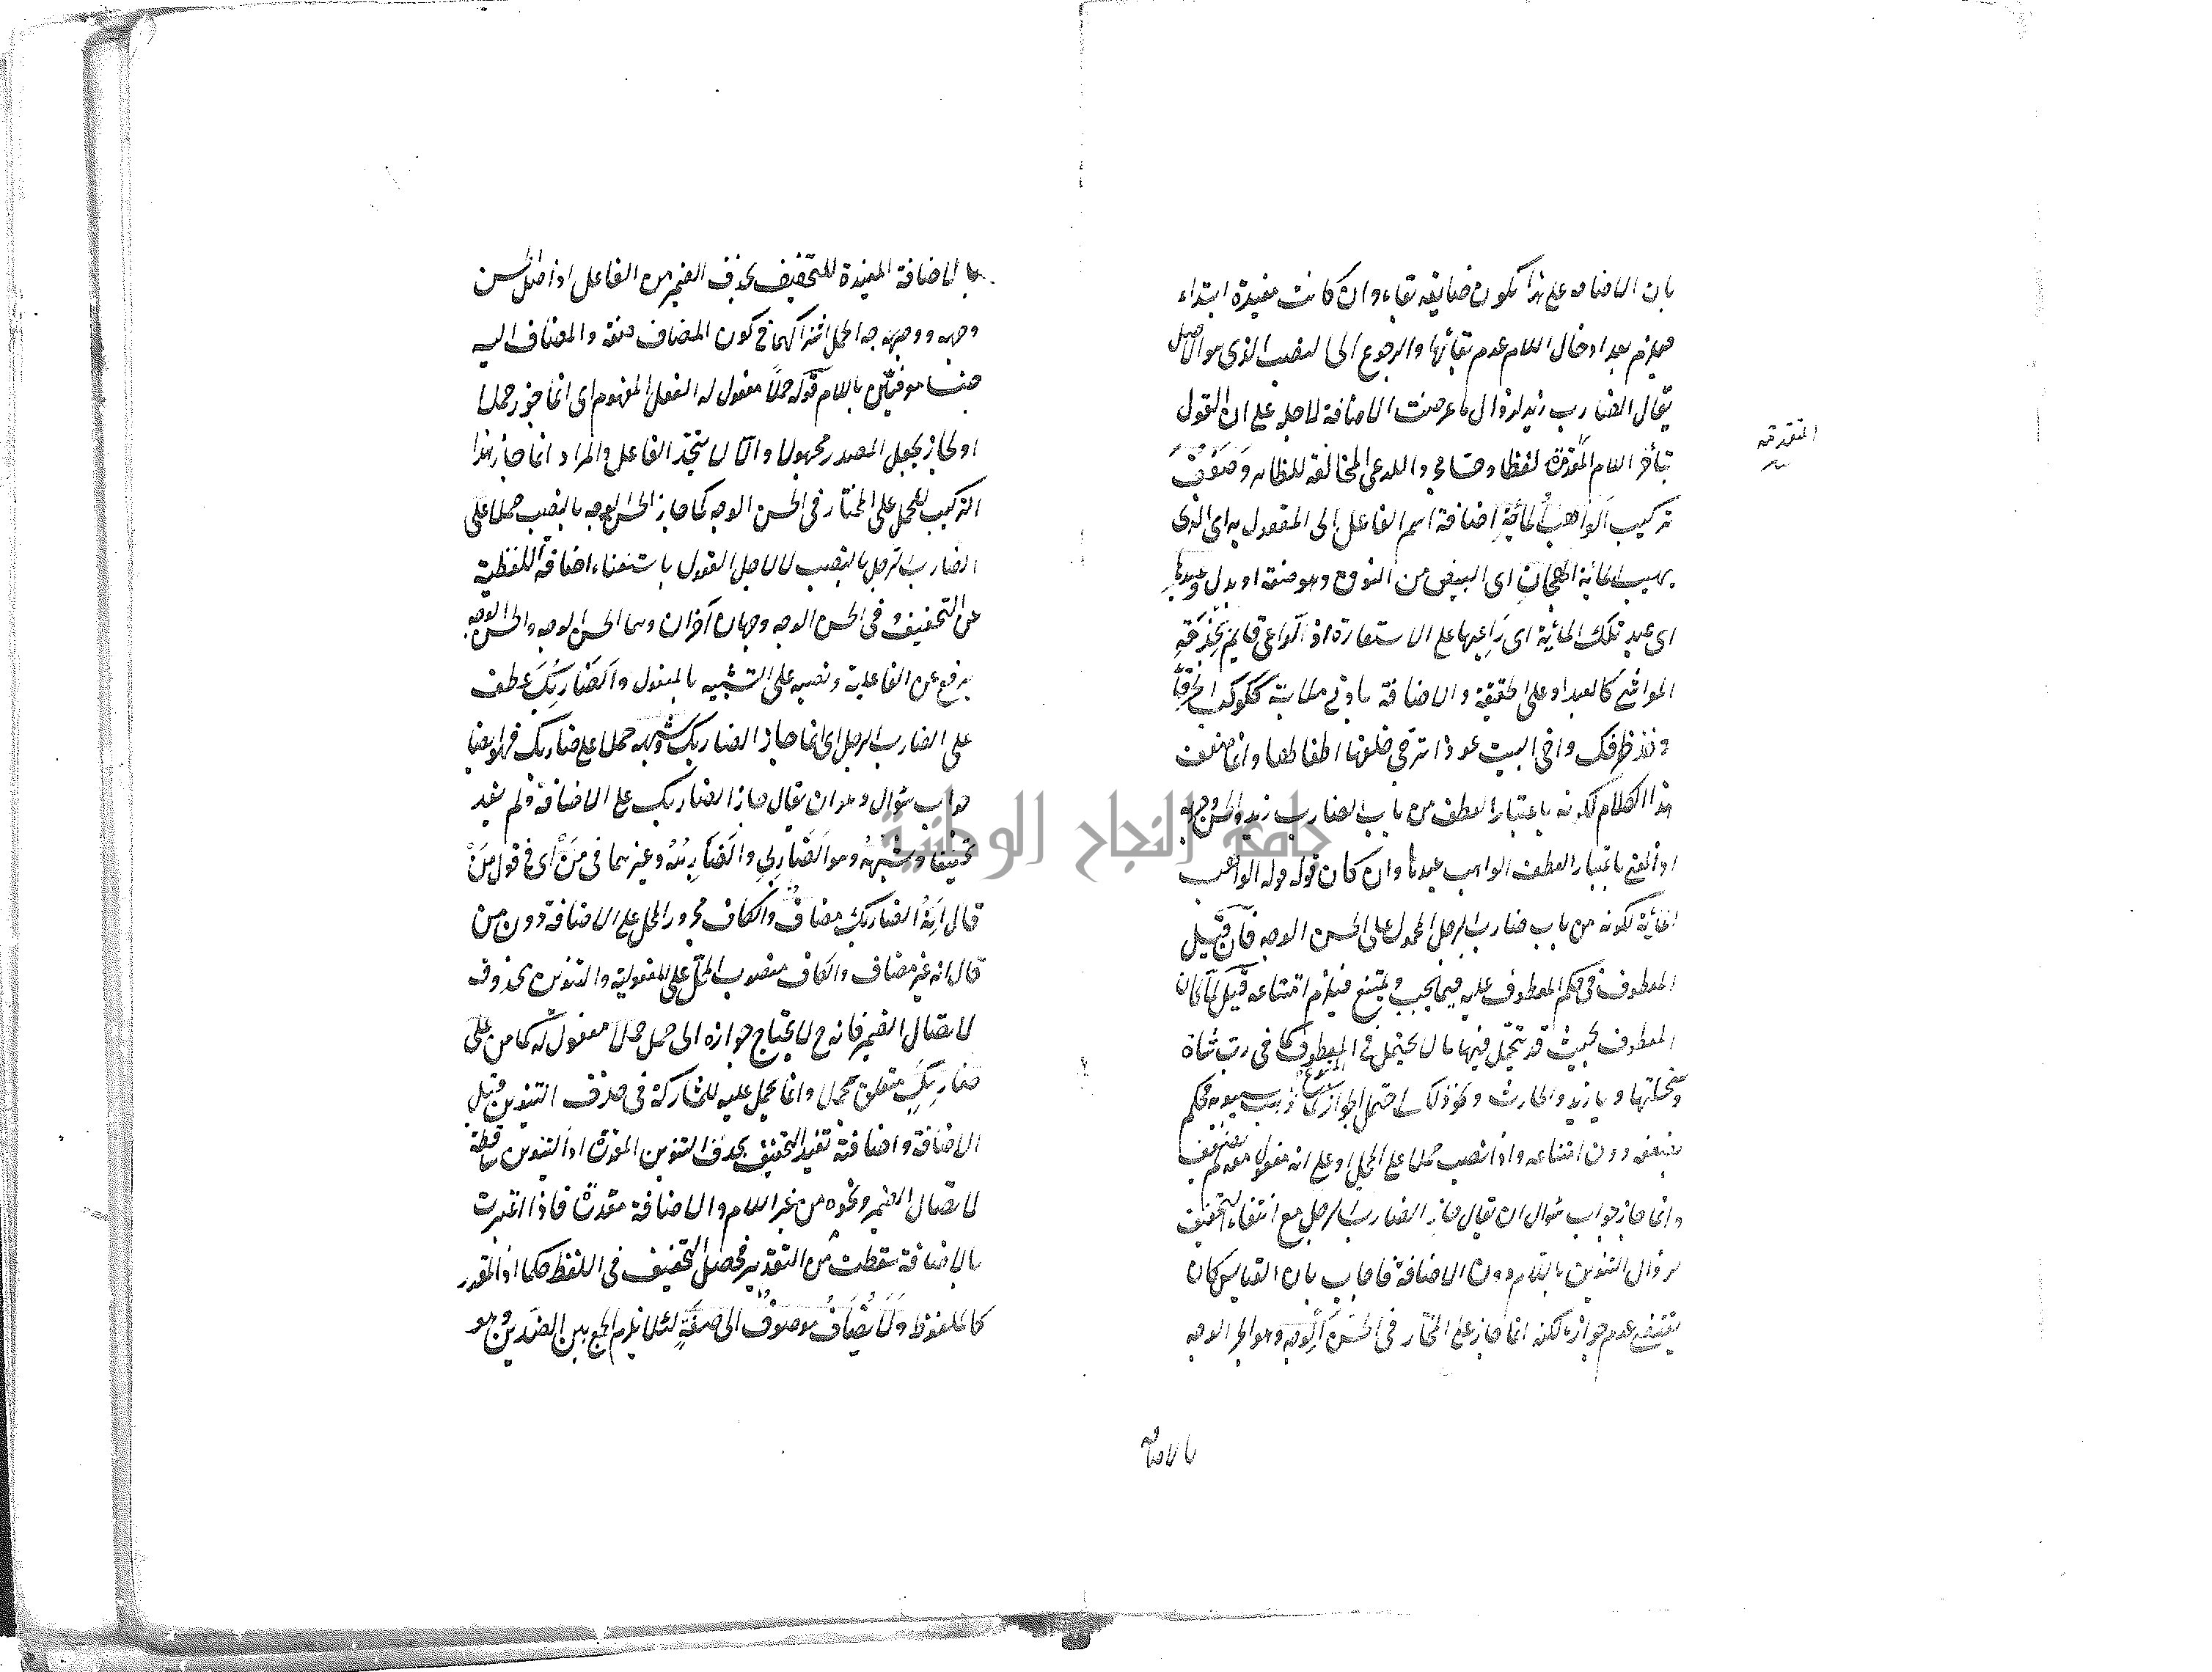 بان الاضافة على هذا تكون ضايعة بقاء وان كانت مفيدة ابتداء
فيلزم بعد ادخال اللام عدم بقائها والرجوع الى النصب الذى هو الاصل
يقال الضارب زيد لزوال ما عرضت الاضافة لاجله على ان القول
بتأخر اللام المتقدمة لفظا وحسا مجرد الدعوى المخالفة للظاهر وضعف
المتقدمة
تركيب الواهب المائة اضافة اسم الفاعل الى المفعول به اى الذى
يهب المائة الهجان اى البيض من النوق وهو صفة او بدل وعبدها
اى عبد تلك المائة اى راعيها على الاستعارة اذ الراعى قايم بخدمة
المواشى كالعبد او على الحقيقة والاضافة بادنى ملابسة ككوكب الخرقاء
وخذ طرفك وافى البيت عوذا تزجى خلفها اطفالها وانما ضعف
هذا الكلام لكونه باعتبار العطف من باب الضارب زيد والحسن وجهه
اذ المعنى باعتبار العطف الواهب عبدها وان كان قوله الواهب
المائة لكونه من باب ضارب الرجل المحمول على الحسن الوجه فان قيل
المعطوف فى حكم المعطوف عليه فيما يجب ويمتنع فيلزم امتناعه قيل لما كان
المعطوف بحيث قد يتحمل فيها ما لا يحتمل فى المعطوف كما فى رب شاة
المتبوع
وسخلتها ويا زيد والحارث ونحو ذلك احتمل الجواز كما ذهب سيبويه فحكم
بضعفه دون امتناعه واذا نصب حملا على المحل او على انه مفعول معه لم يضعف
وانما جاز جواب سؤال ان يقال جاز الضارب الرجل مع انتفاء التخفيف
لزوال التنوين باللام دون الاضافة فاجاب بان القياس كان
يقتضى عدم جوازه لكنه انما جاز على المختار فى الحسن الوجه وهو الجر الوجه
بالاضافة
بالاضافة المفيدة للتخفيف بحذف الضمير من الفاعل اذ اصله الحسن
وجهه ووجه الحمل اشتراكهما فى كون المضاف صفة والمضاف اليه
جنسا موفيين باللام قوله حملا مفعول له الفعل المفهوم اى انما جوز حملا
او لجاز بجعل المصدر مجهولا والا لا يتحد الفاعل والمراد انما جاز هذا
التركيب للحمل على المختار فى الحسن الوجه كما جاز الحسن الوجه بالنصب حملا على
الضارب الرجل بالنصب لا لاجل القول باستغناء اضافة اللفظية
عن التخفيف وفى الحسن الوجه وجهان آخران وهما الحسن الوجه والحسن الوجه
يرفع عن الفاعلية ونصبه على التشبيه بالمفعول والضاربك عطف
على الضارب الرجل اى انما جاز الضاربك وشبهه حملا على ضاربك فهو ايضا
جواب سؤال وهو ان يقال جاز الضاربك على الاضافة ولم يفد
تخفيفا وشبهه وهو الضاربى والضاربه وغيرهما فى من اى فى قول من
قال انه الضاربك مضاف والكاف مجرور المحل على الاضافة دون من
قال انه غير مضاف والكاف منصوب المحل على المفعولية والتنوين محذوف
لاتصال الضمير فانه ح لا يحتاج جوازه الى حمل حملا مفعول له كما من على
ضاربك متعلق بحملا وانما يحمل عليه للمشاركة فى حذف التنوين قبل
الاضافة واضافته تفيد التخفيف بحذف التنوين المقدرة اذ التنوين ساقطة
لاتصال الضمير ونحوه من غير اللام والاضافة مقدرة فاذا اعتبرت
بالاضافة سقطت من التقدير فحصل التخفيف فى اللفظ حكما اذ المقدر
كالملفوظ ولا يضاف موصوف الى صفة لئلا يلزم الجمع بين الضدين وهو
جامعة النجاح الوطنية